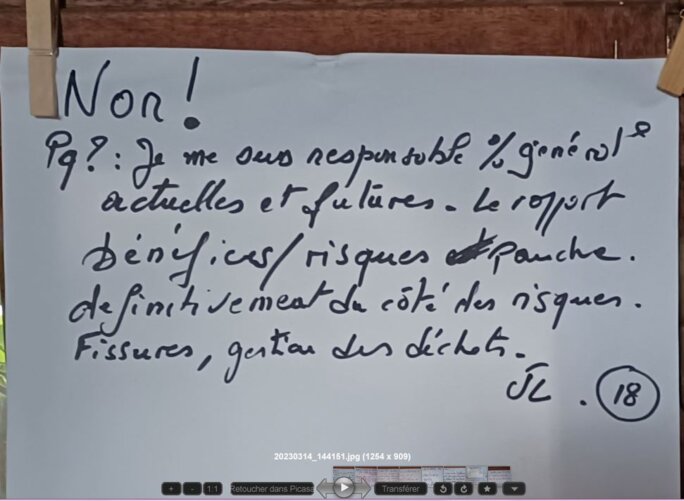 Non!
Pq?: Je me sens responsable % générales
actuelles et futures. Le rapport
bénéfices/risques penche.
definitivement du côté des risques.
Fissures, gestion des déchets.
JL. 18
20230314_144151.jpg (1254 x 909)
1:1 Retoucher dans Picasa Transférer